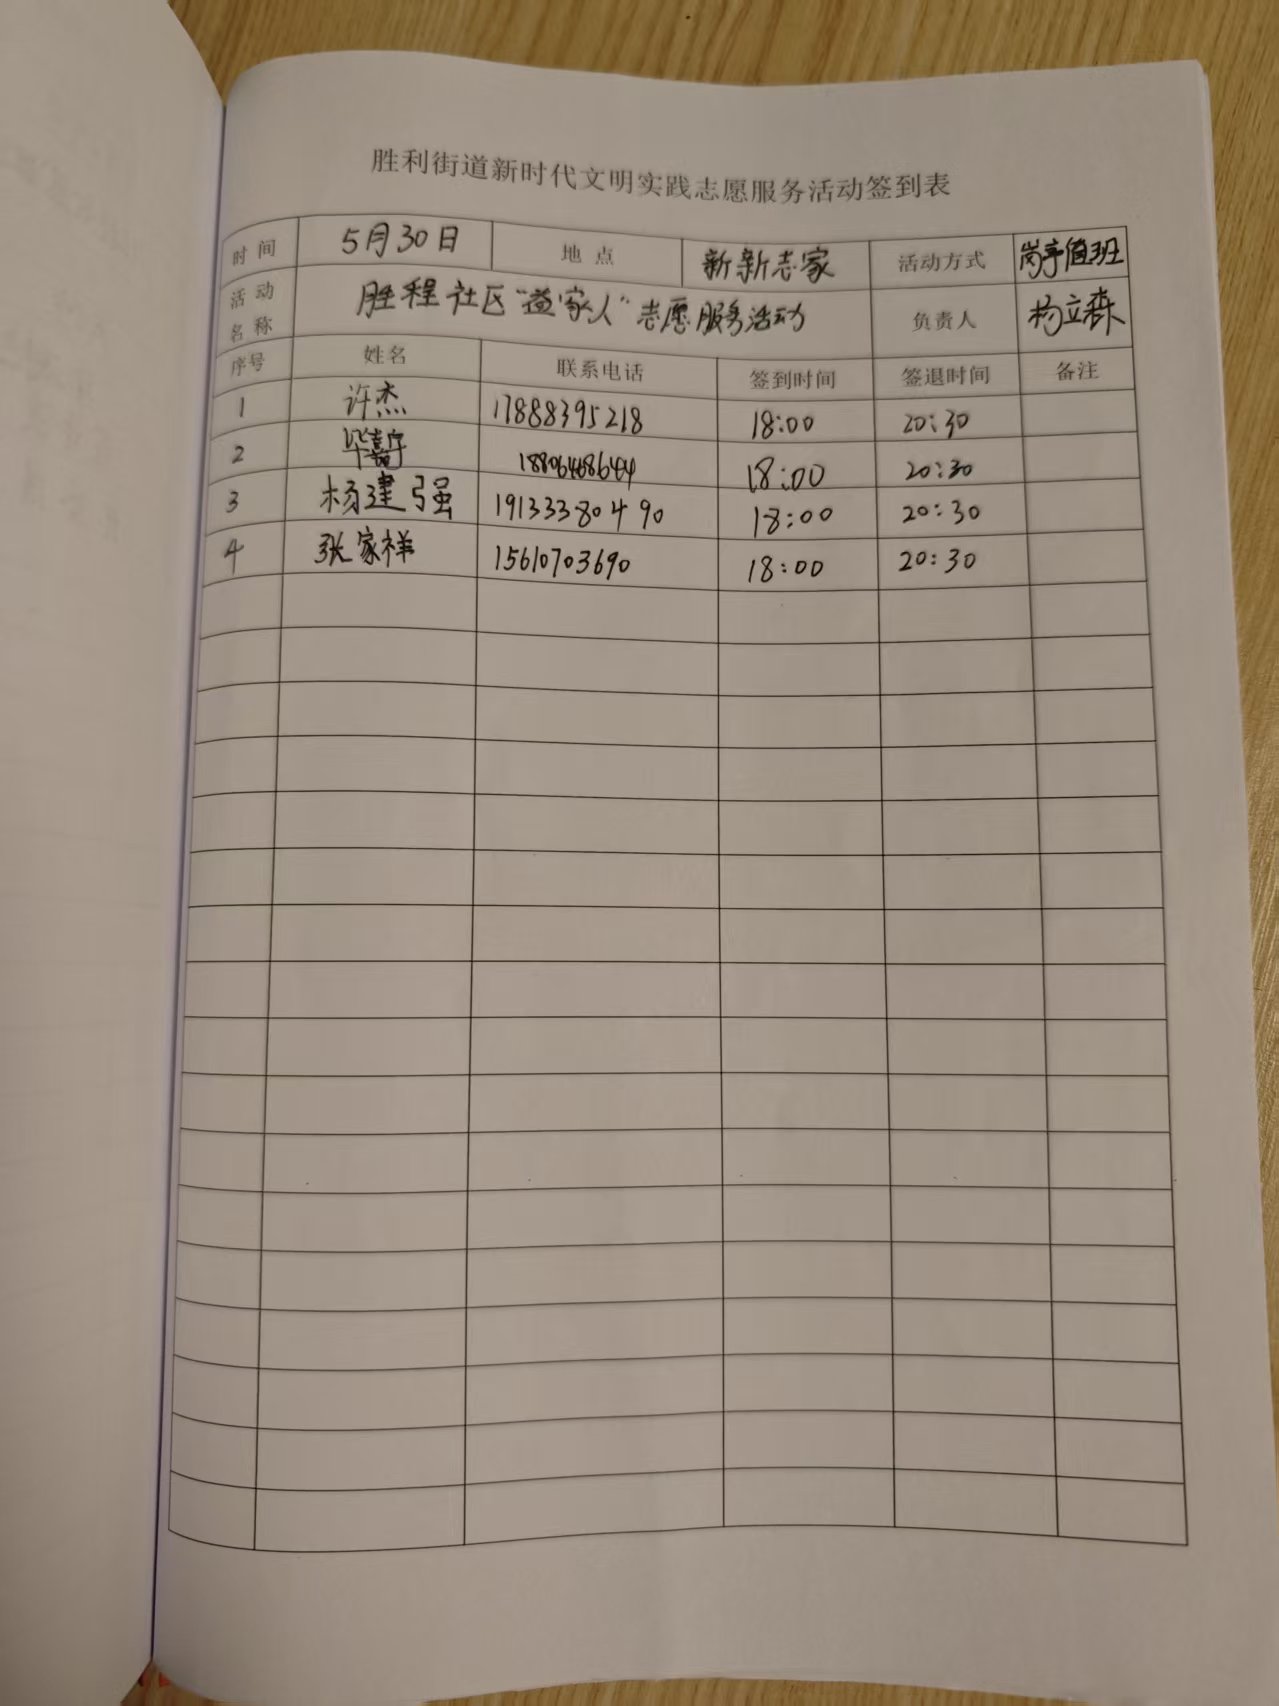 胜利街道新时代文明实践志愿服务活动签到表
时间 5月30日 地点 新新志家 活动方式 岗亭值班
活动名称 胜程社区“益家人”志愿服务活动 负责人 杨立森
序号 姓名 联系电话 签到时间 签退时间 备注
1 许杰 17888395218 18:00 20:30
2 毕嘉宇 18806468644 18:00 20:30
3 杨建强 19133380490 18:00 20:30
4 张家祥 15610703690 18:00 20:30